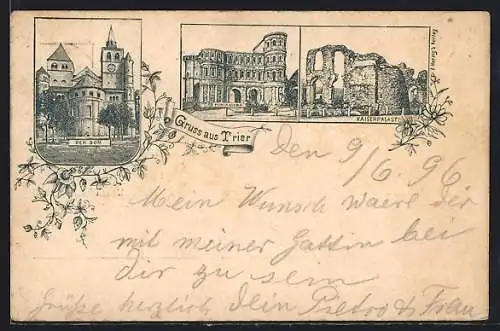 DER DOM
Gruss aus Trier
KAISERPALAST
Den 9/6. 96
Mein Wunsch waere der
mit meiner Gattin bei
dir zu sein
Grüße herzlich dein Pietro & Frau